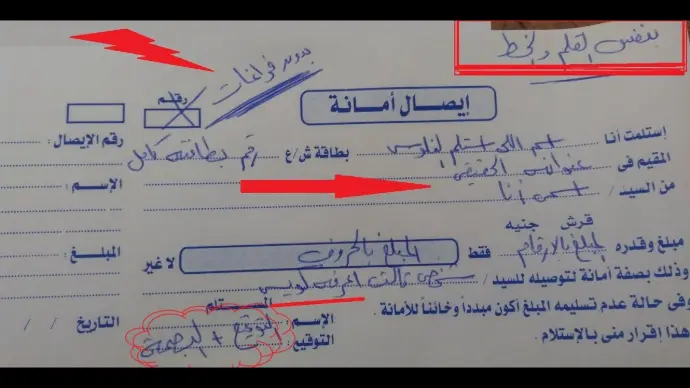 بنفس القلم والخط
بدون فراغات
رقم
إيصال أمانة
رقم الإيصال :
إستلمت أنا اسم اللى استلم الفلوس بطاقة ش/ع رقم بطاقته كامل
المقيم فى عنوانه الحقيقى
الإسم :
من السيد / اسمى أنا
قرش جنيه
مبلغ وقدره المبلغ بالارقام فقط المبلغ بالحروف لا غير
المبلغ :
وذلك بصفة أمانة لتوصيله للسيد / شخص تالت اعرفه كويس
وفى حالة عدم تسليمه المبلغ أكون مبدداً وخائناً للأمانة .
هذا إقرار منى بالإستلام .
المستلم
الإسم :
التوقيع : التوقيع + البصمة
التاريخ / /